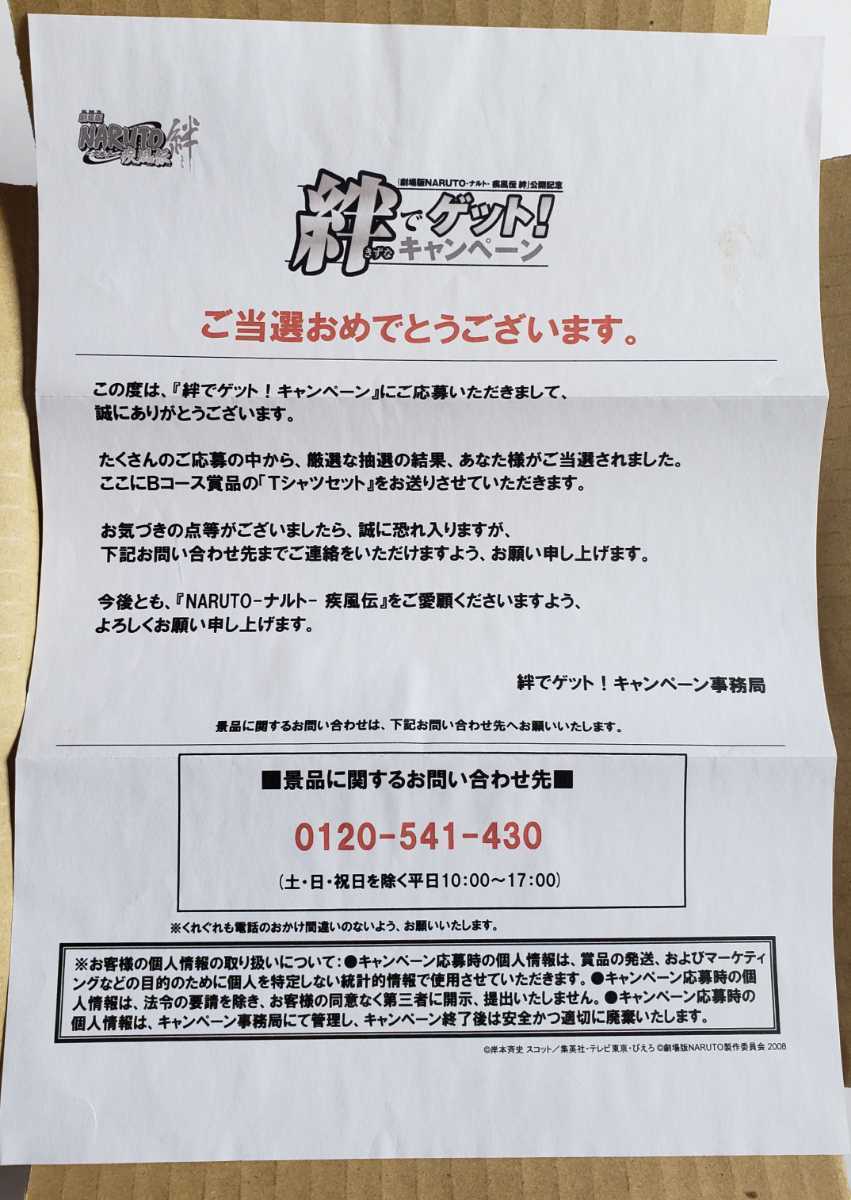 劇場版
NARUTO 絆
疾風伝
『劇場版NARUTO-ナルト- 疾風伝 絆』公開記念
絆でゲット!
きずな キャンペーン
ご当選おめでとうございます。
この度は、『絆でゲット！キャンペーン』にご応募いただきまして、
誠にありがとうございます。
たくさんのご応募の中から、厳選な抽選の結果、あなた様がご当選されました。
ここにBコース賞品の「Tシャツセット』をお送りさせていただきます。
お気づきの点等がございましたら、誠に恐れ入りますが、
下記お問い合わせ先までご連絡をいただけますよう、お願い申し上げます。
今後とも、『NARUTO-ナルト- 疾風伝』をご愛願くださいますよう、
よろしくお願い申し上げます。
絆でゲット！キャンペーン事務局
景品に関するお問い合わせは、下記お問い合わせ先へお願いいたします。
■景品に関するお問い合わせ先■
0120-541-430
(土・日・祝日を除く平日10:00～17:00)
※くれぐれも電話のおかけ間違いのないよう、お願いいたします。
※お客様の個人情報の取り扱いについて：●キャンペーン応募時の個人情報は、賞品の発送、およびマーケティ
ングなどの目的のために個人を特定しない統計的情報で使用させていただきます。●キャンペーン応募時の個
人情報は、法令の要請を除き、お客様の同意なく第三者に開示、提出いたしません。●キャンペーン応募時の
個人情報は、キャンペーン事務局にて管理し、キャンペーン終了後は安全かつ適切に廃棄いたします。
©岸本斉史 スコット／集英社・テレビ東京・ぴえろ ©劇場版NARUTO製作委員会 2008